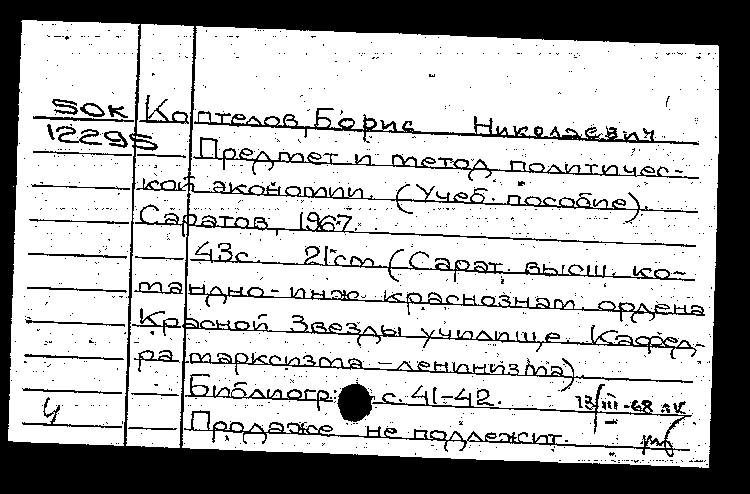 SOK Каптелов, Борис Николаевич
12295 Предмет и метод политичес-
кой экономии. (Учеб. пособие).
Саратов, 1967.
43с. 21cm (Сарат. высш. ко-
мандно-инж. краснознам. ордена
Красной Звезды училище. Кафед-
ра марксизма-ленинизма).
Библиогр. с. 41-42.
13/III-68 лк
Ч Продаже не подлежит.